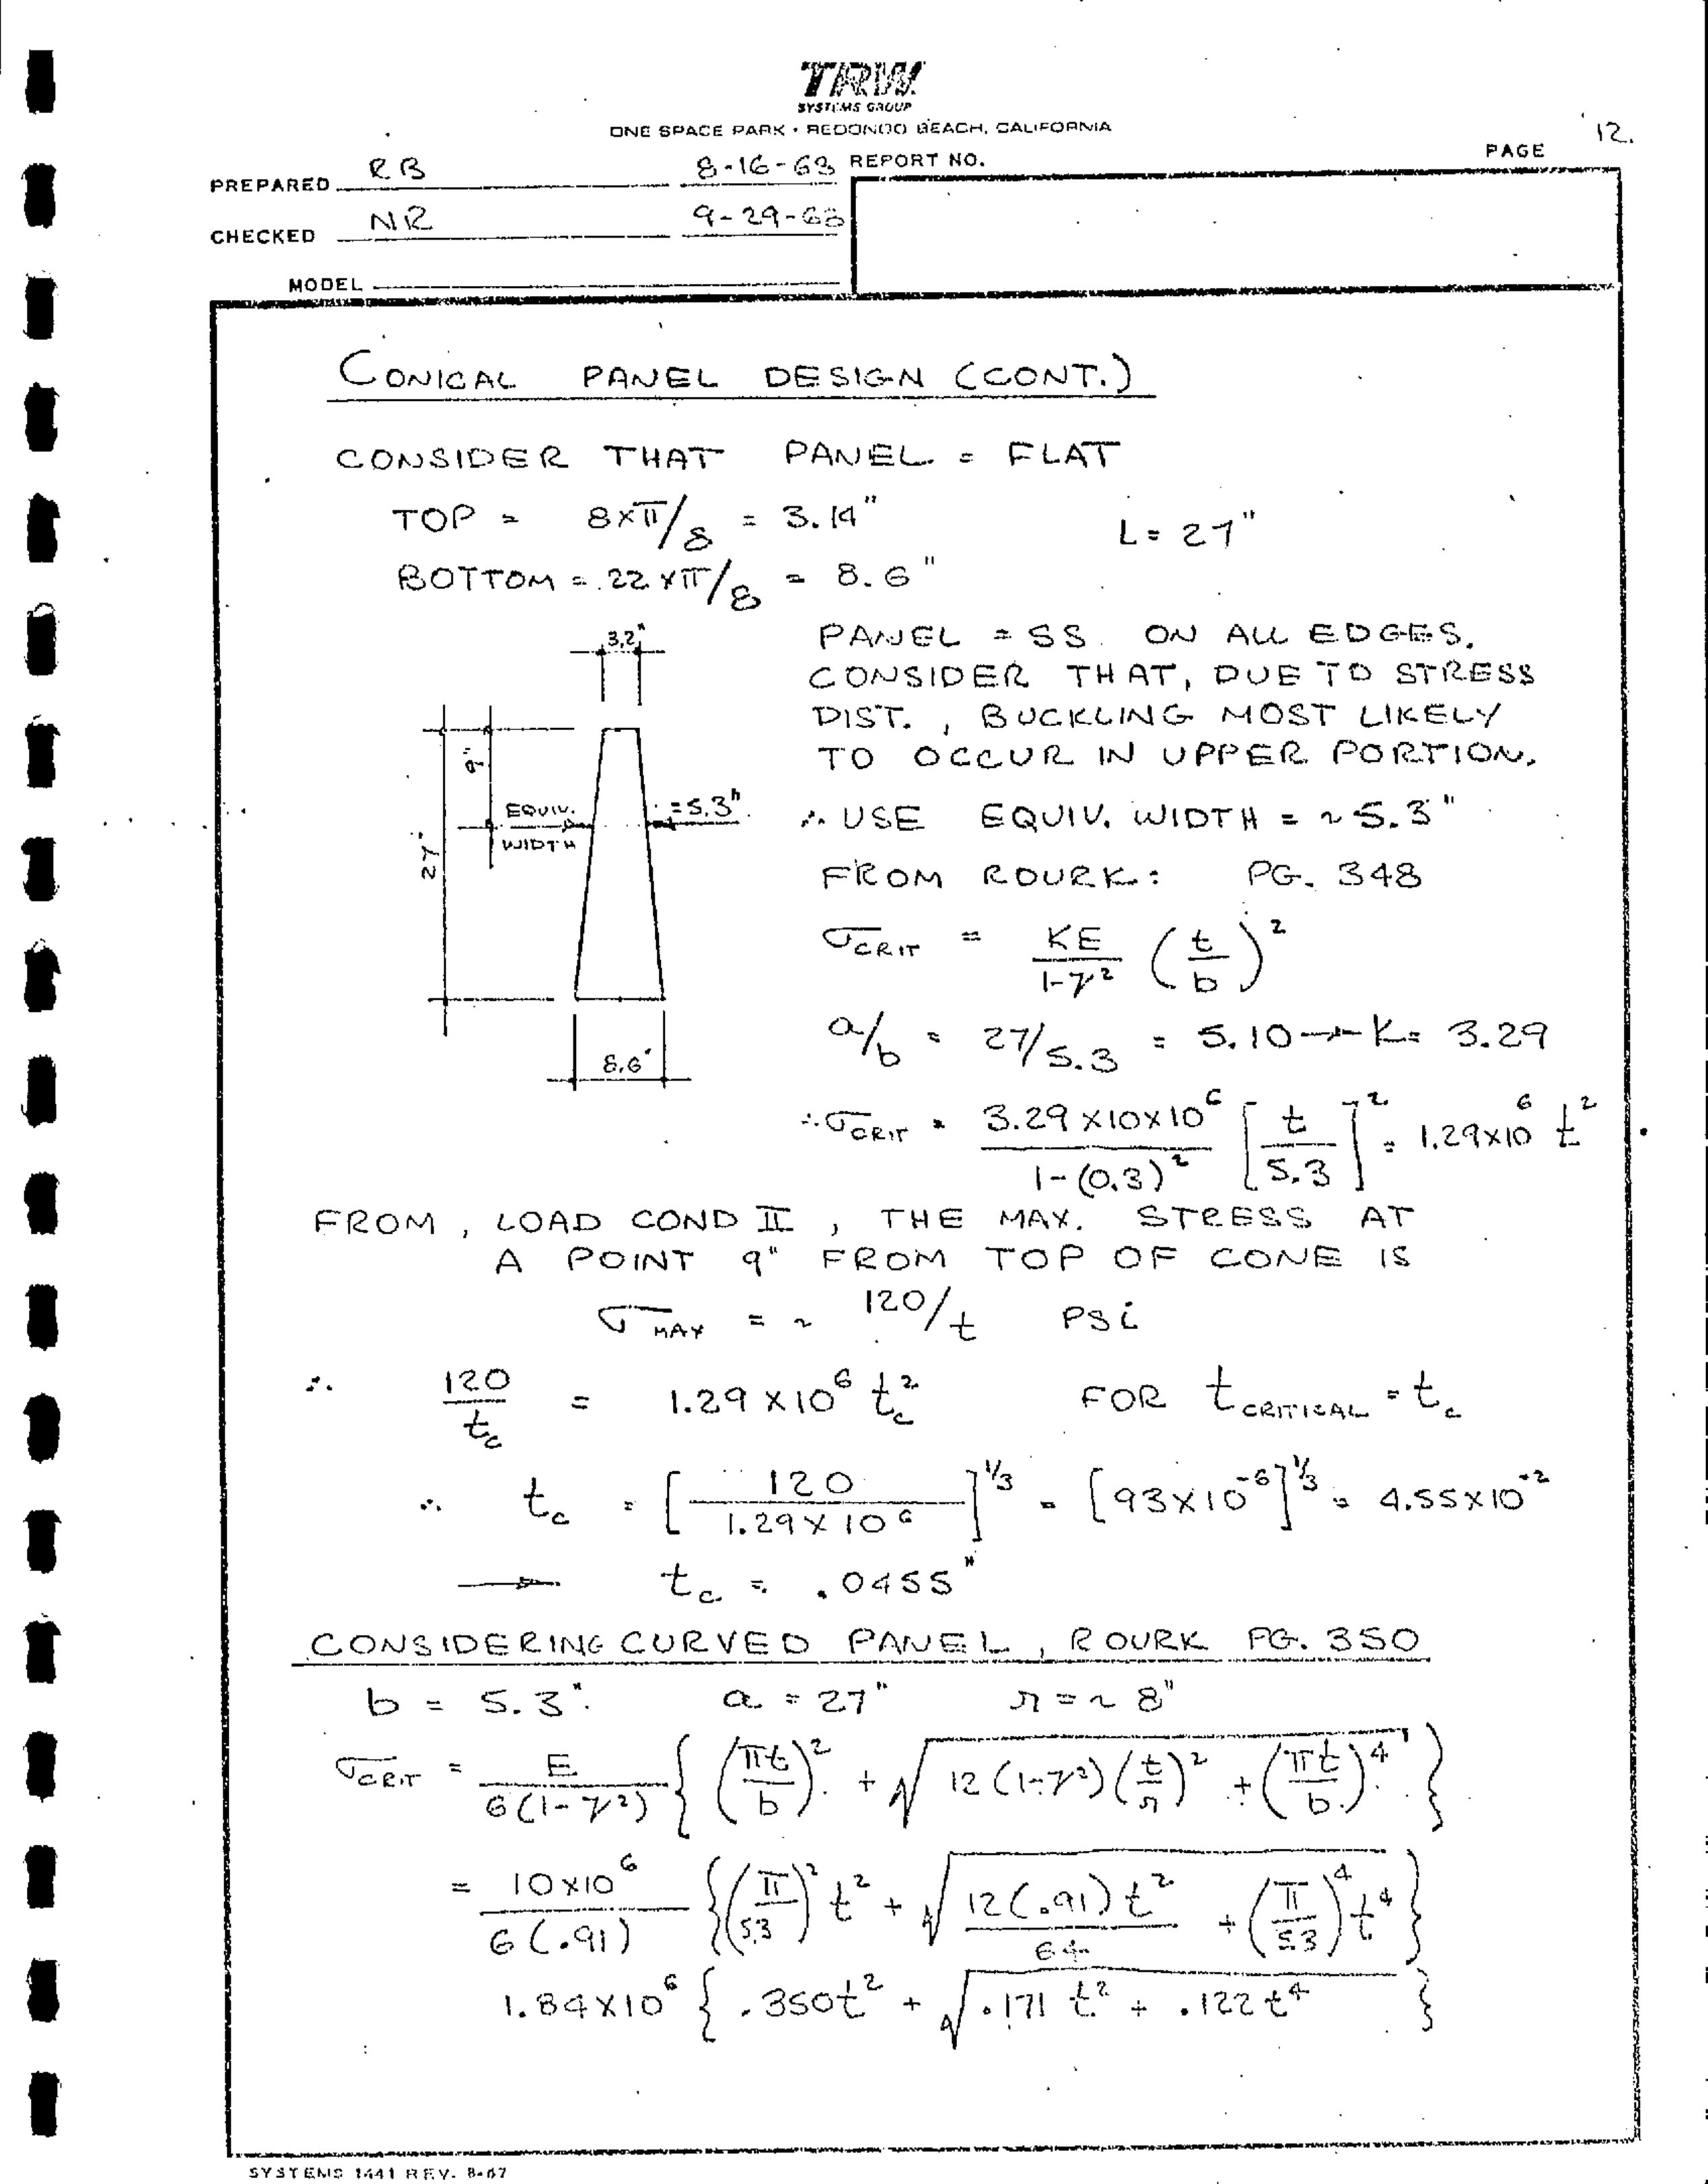 TRW
SYSTEMS GROUP
ONE SPACE PARK • REDONDO BEACH, CALIFORNIA
PAGE 12.
PREPARED RB 8-16-68 REPORT NO.
CHECKED NR 9-29-68
MODEL
CONICAL PANEL DESIGN (CONT.)
CONSIDER THAT PANEL = FLAT
TOP = 8×π/8 = 3.14" L = 27"
BOTTOM = 22×π/8 = 8.6"
3.2"
9"
27"
EQUIV. WIDTH = 5.3"
8.6"
PANEL = SS. ON ALL EDGES.
CONSIDER THAT, DUE TO STRESS
DIST., BUCKLING MOST LIKELY
TO OCCUR IN UPPER PORTION.
∴ USE EQUIV. WIDTH = ~ 5.3"
FROM ROURK: PG. 348
σCRIT = KE/(1-ν²) (t/b)²
a/b = 27/5.3 = 5.10 → K = 3.29
∴ σCRIT = 3.29×10×10⁶/(1-(0.3)²) [t/5.3]² = 1.29×10⁶ t²
FROM, LOAD COND II, THE MAX. STRESS AT
A POINT 9" FROM TOP OF CONE IS
σMAX = ~ 120/t PSi
∴ 120/tc = 1.29×10⁶ tc² FOR tCRITICAL = tc
∴ tc = [120/(1.29×10⁶)]^1/3 = [93×10⁻⁶]^1/3 = 4.55×10⁻²
→ tc = .0455"
CONSIDERING CURVED PANEL, ROURK PG. 350
b = 5.3" a = 27" r = ~ 8"
σCRIT = E/(6(1-ν²)) { (πt/b)² + √(12(1-ν²)(t/r)² + (πt/b)⁴) }
= 10×10⁶/(6(.91)) { (π/5.3)² t² + √(12(.91)t²/64 + (π/5.3)⁴ t⁴) }
1.84×10⁶ { .350t² + √(.171 t² + .122 t⁴) }
SYSTEMS 1441 REV. 8-67